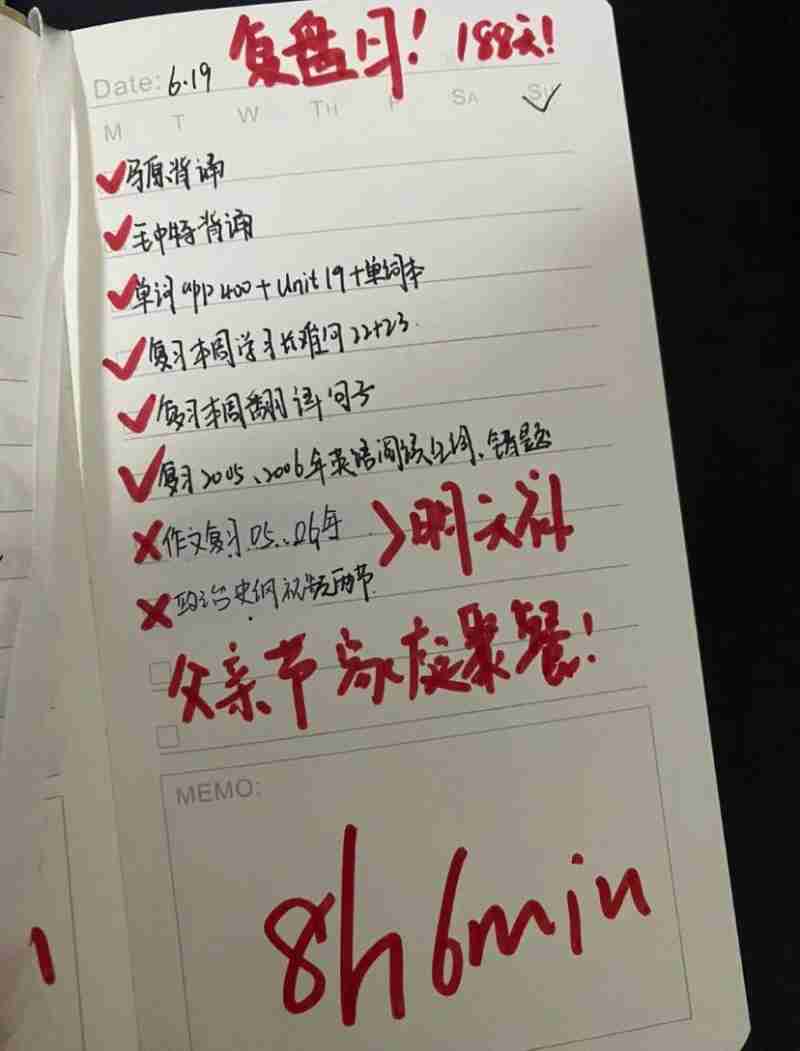 复盘日！ 188天！
Date: 6.19
M T W TH F SA SU
马原背诵
毛中特背诵
单词app400+Unit19+单词本
复习本周学习长难句22+23
复习本周翻译句子
复习2005、2006年英语阅读生词、错题
作文复习05、06年
政治史纲视频两节
>明天补
父亲节家庭聚餐！
MEMO:
8h6min
1